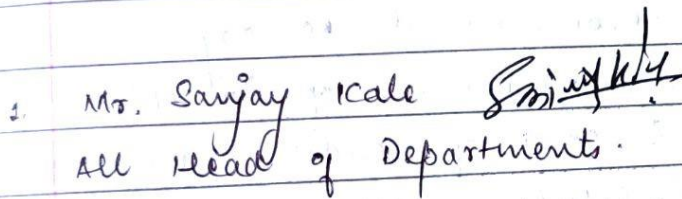 1. Mr. Sanjay Kale
All Head of Departments.